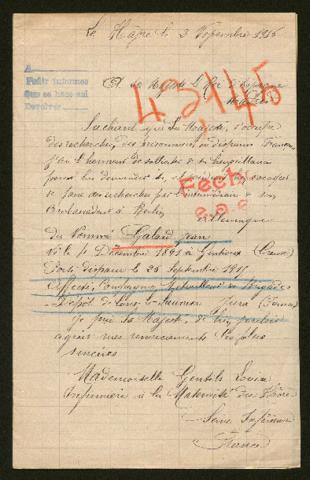 Le Havre le 3 Novembre 1916
A
Pedir informes
Que se hace aquí
Devolver
A Sa Majesté le Roi d'Espagne
Madrid
43445
Sachant que Sa Majesté, s'occupe
des recherches des prisonniers ou disparus Français
j'ai l'honneur de solliciter de sa bienveillance
pour lui demander de
faire des recherches par l'intermédiaire de son
Ambassadeur à Berlin
Fecha
Allemagne
du Nommé Galand Jean
né le Décembre 1891 à
Porté disparu le 26 Septembre 1915
Affecté, Compagnie de Brigade
Dépôt de Lons le Saunier Jura (France)
Je prie Sa Majesté, de bien vouloir
agréer mes remerciements les plus
sincères
Mademoiselle Gentils
Infirmière à la Maternité du Hâvre
Seine Inférieure
France